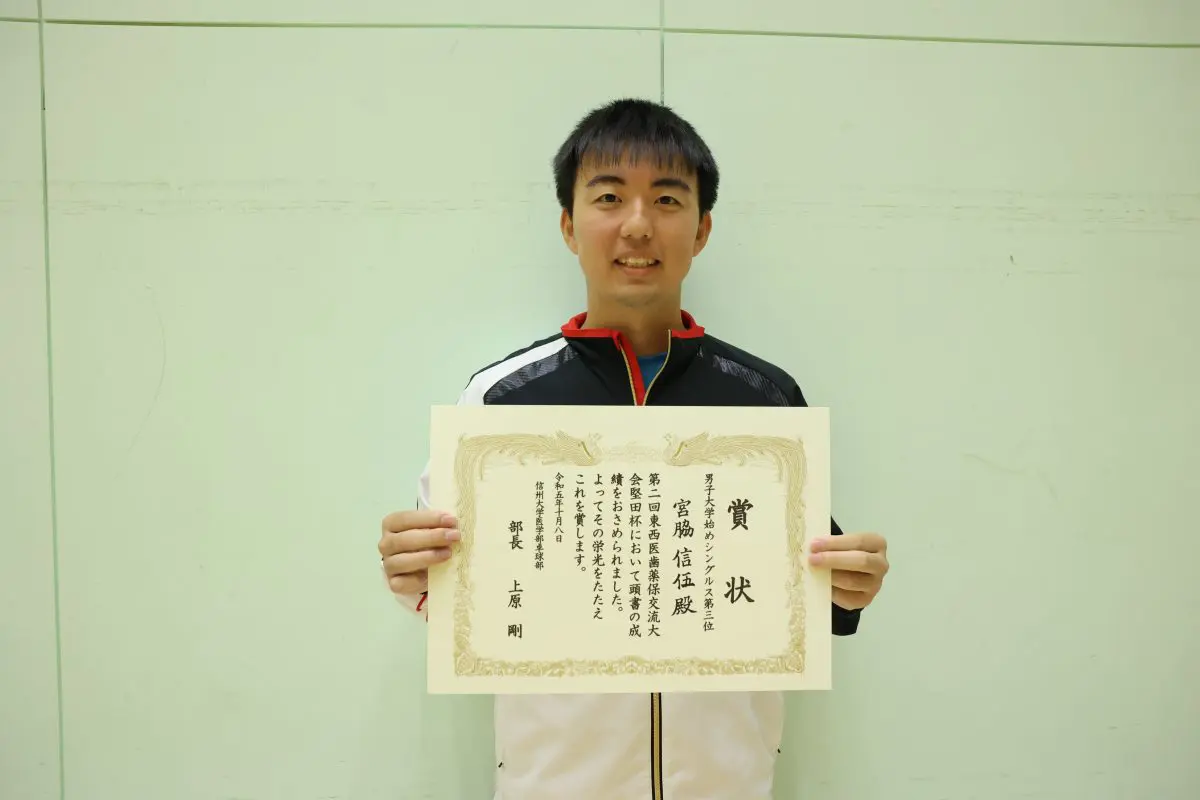 賞状
男子大学始めシングルス第三位
宮脇 信伍殿
第二回東西医歯薬保交流大
会堅田杯において頭書の成
績をおさめられました。
よってその栄光をたたえ
これを賞します。
令和五年十月八日
信州大学医学部卓球部
部長 上原 剛